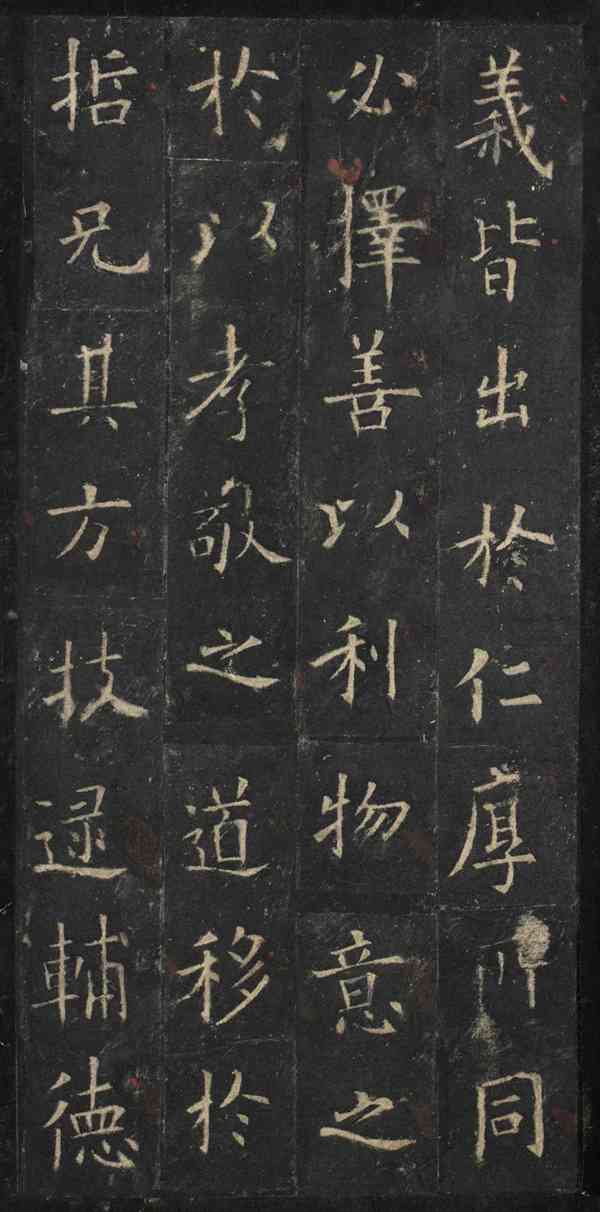 義皆出於仁厚所同
必擇善以利物意之
於以孝敬之道移於
哲兄其方技逯輔德